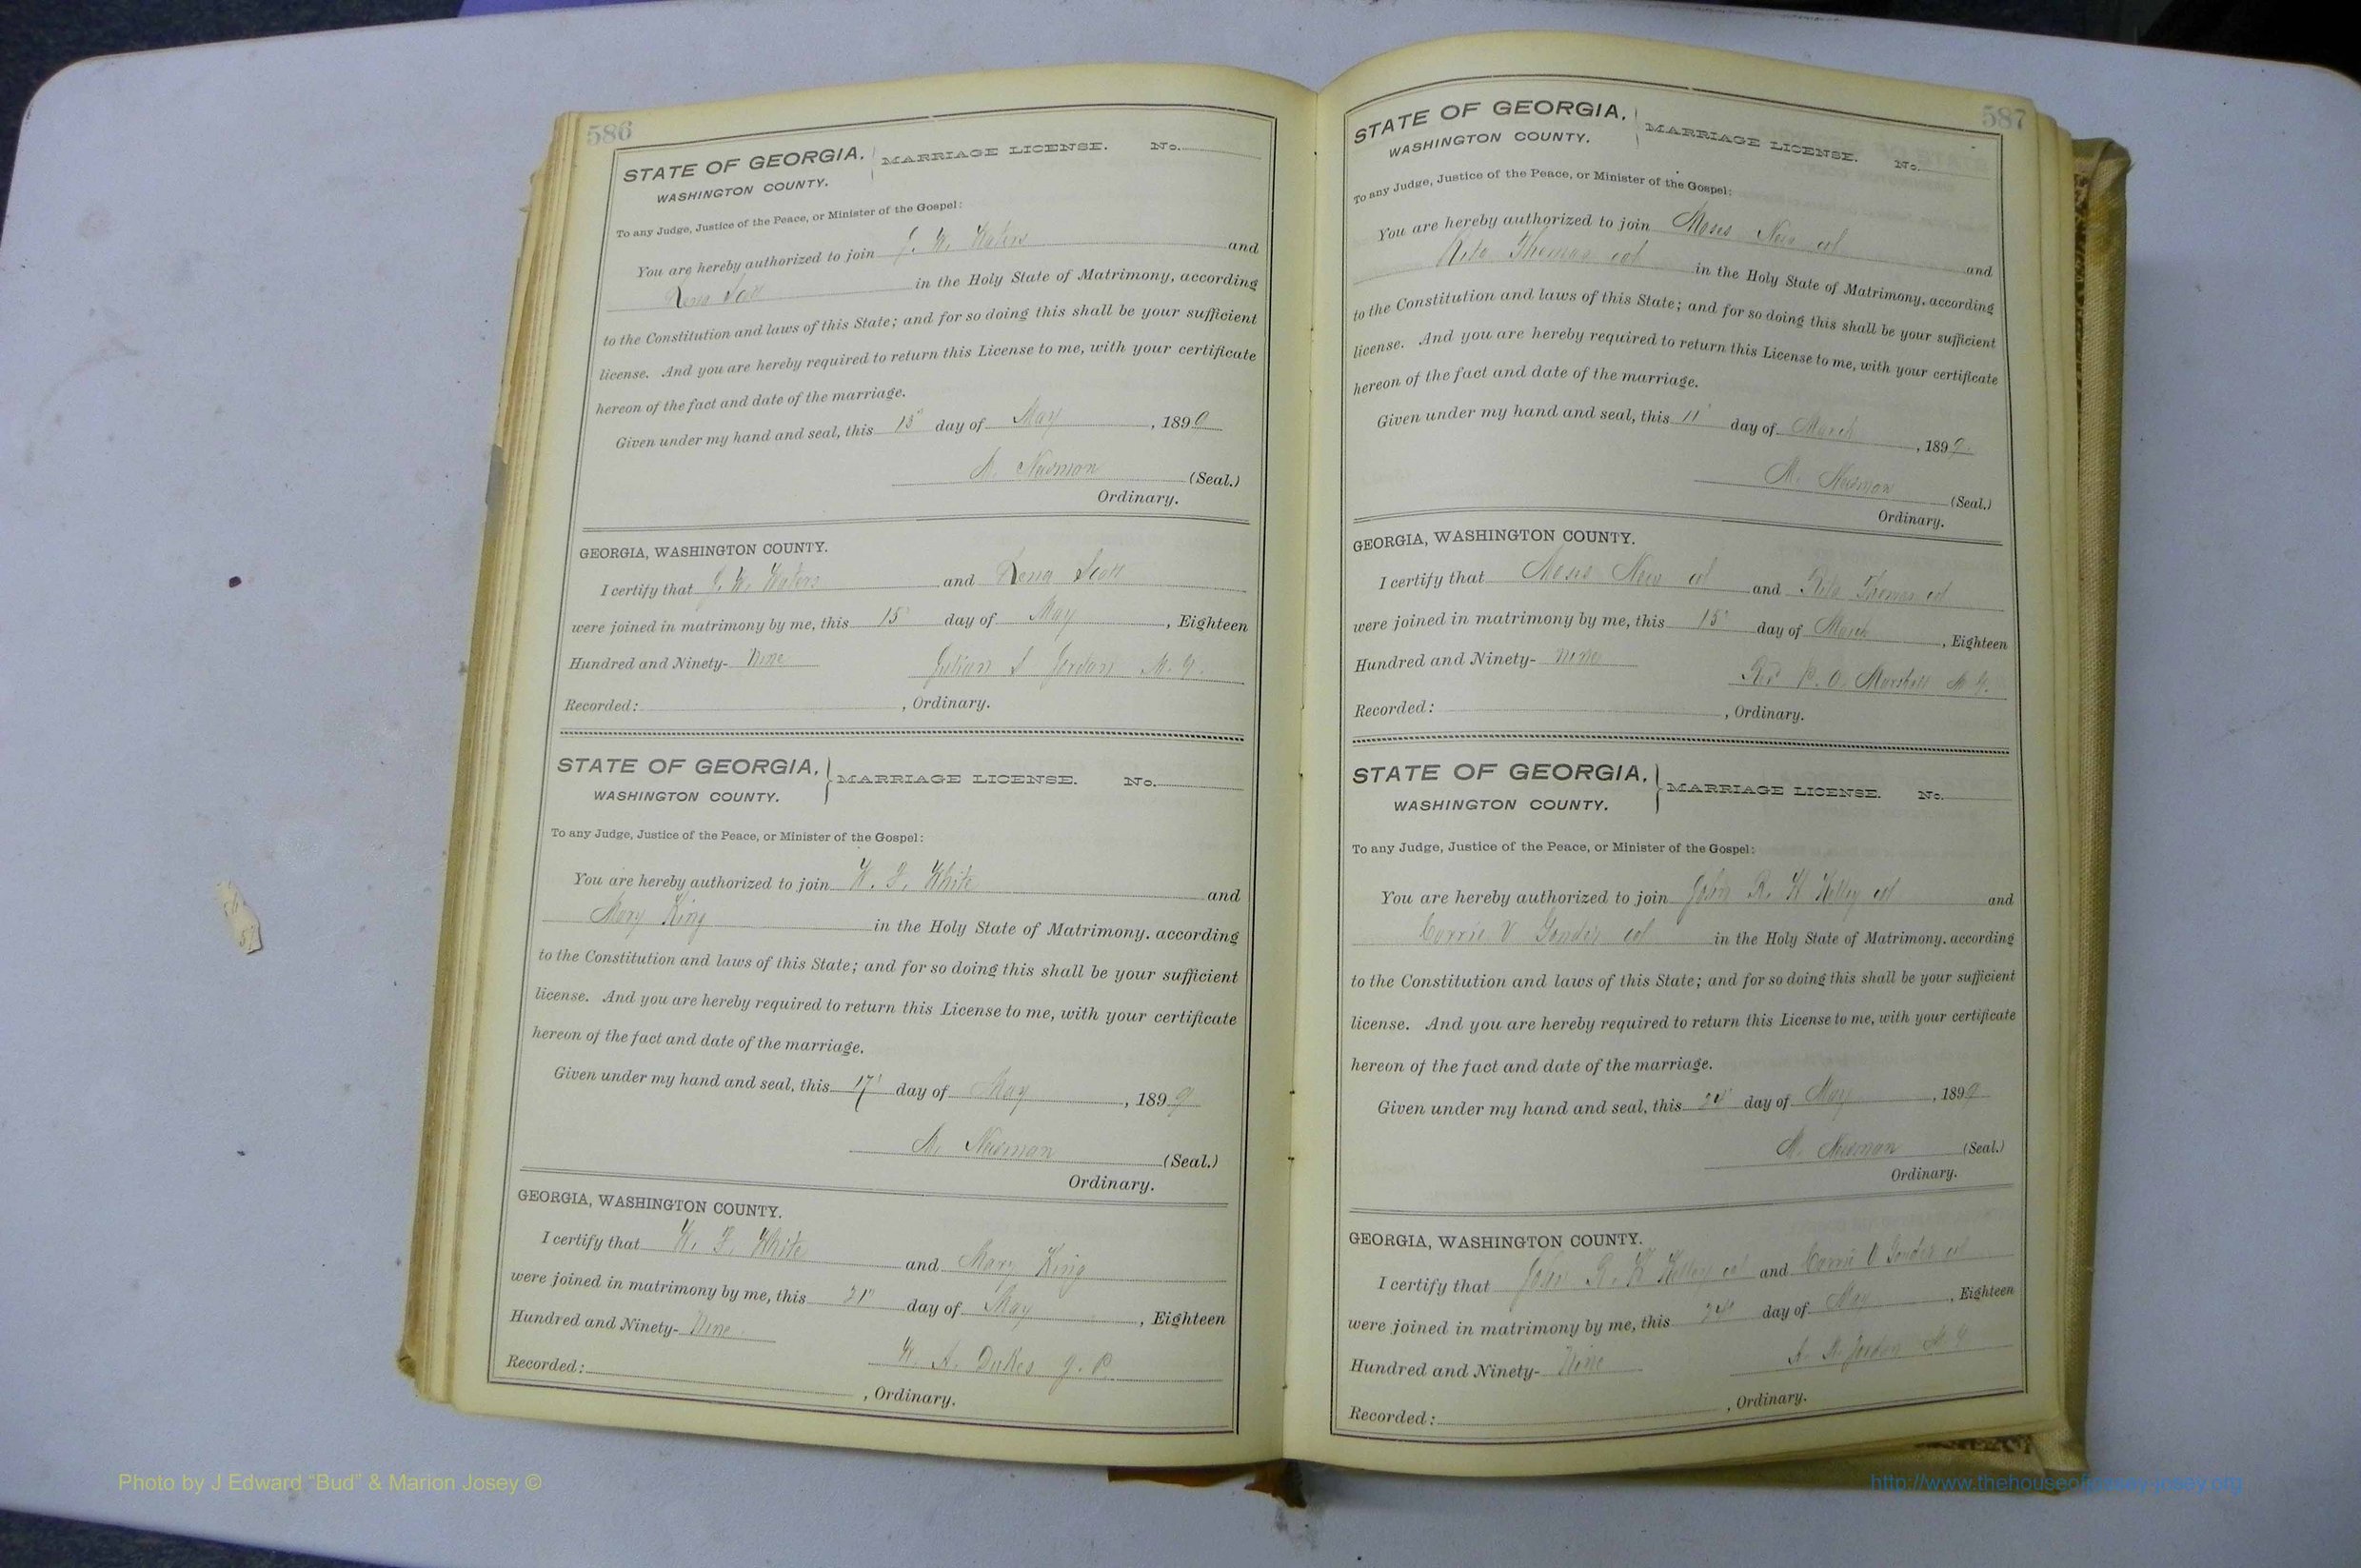 586
STATE OF GEORGIA, MARRIAGE LICENSE. No.
WASHINGTON COUNTY.
To any Judge, Justice of the Peace, or Minister of the Gospel:
You are hereby authorized to join J. W. Waters and
Rena Scott in the Holy State of Matrimony, according
to the Constitution and laws of this State; and for so doing this shall be your sufficient
license. And you are hereby required to return this License to me, with your certificate
hereon of the fact and date of the marriage.
Given under my hand and seal, this 15" day of May, 1899
M. Newman (Seal.)
Ordinary.
GEORGIA, WASHINGTON COUNTY.
I certify that J. W. Waters and Rena Scott
were joined in matrimony by me, this 15" day of May, Eighteen
Hundred and Ninety- Nine Julian S Jordan M. G.
Recorded: , Ordinary.
STATE OF GEORGIA, MARRIAGE LICENSE. No.
WASHINGTON COUNTY.
To any Judge, Justice of the Peace, or Minister of the Gospel:
You are hereby authorized to join W. F. White and
Mary King in the Holy State of Matrimony. according
to the Constitution and laws of this State; and for so doing this shall be your sufficient
license. And you are hereby required to return this License to me, with your certificate
hereon of the fact and date of the marriage.
Given under my hand and seal, this 17" day of May, 1899
M. Newman (Seal.)
Ordinary.
GEORGIA, WASHINGTON COUNTY.
I certify that W. F. White and Mary King
were joined in matrimony by me, this 21" day of May, Eighteen
Hundred and Ninety- Nine
W. A. Dukes J. P.
Recorded: , Ordinary.
587
STATE OF GEORGIA, MARRIAGE LICENSE. No.
WASHINGTON COUNTY.
To any Judge, Justice of the Peace, or Minister of the Gospel:
You are hereby authorized to join Moses New col and
Rita Thomas col in the Holy State of Matrimony, according
to the Constitution and laws of this State; and for so doing this shall be your sufficient
license. And you are hereby required to return this License to me, with your certificate
hereon of the fact and date of the marriage.
Given under my hand and seal, this 11" day of March, 1899.
M. Newman (Seal.)
Ordinary.
GEORGIA, WASHINGTON COUNTY.
I certify that Moses New col and Rita Thomas col
were joined in matrimony by me, this 15" day of March, Eighteen
Hundred and Ninety- nine Rev P. O. Marshall M. G.
Recorded: , Ordinary.
STATE OF GEORGIA, MARRIAGE LICENSE. No.
WASHINGTON COUNTY.
To any Judge, Justice of the Peace, or Minister of the Gospel:
You are hereby authorized to join John R. H Kelley col and
Carrie V Gonder col in the Holy State of Matrimony. according
to the Constitution and laws of this State; and for so doing this shall be your sufficient
license. And you are hereby required to return this License to me, with your certificate
hereon of the fact and date of the marriage.
Given under my hand and seal, this 24" day of May, 1899
M. Newman (Seal.)
Ordinary.
GEORGIA, WASHINGTON COUNTY.
I certify that John R. H Kelley col and Carrie V Gonder col
were joined in matrimony by me, this 24" day of May, Eighteen
Hundred and Ninety- Nine Jordan M G
Recorded: , Ordinary.
Photo by J Edward "Bud" & Marion Josey ©